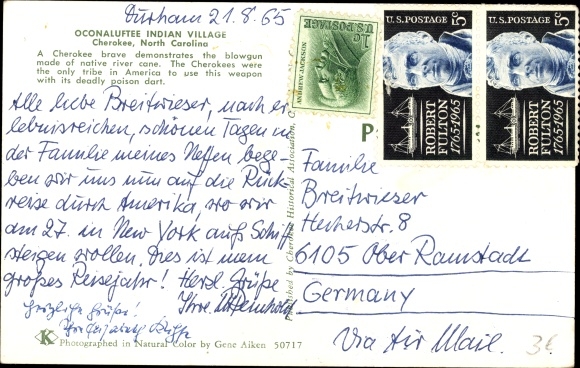 Durham 21.8.65
OCONALUFTEE INDIAN VILLAGE
Cherokee, North Carolina
A Cherokee brave demonstrates the blowgun
made of native river cane. The Cherokees were
the only tribe in America to use this weapon
with its deadly poison dart.
Alle liebe Breitwieser, nach er
lebnisreichen, schönen Tagen in
der Familie meines Neffen bege-
ben wir uns nun auf die Rück
reise durch Amerika, wo wir
am 27. in New York aufs Schiff
steigen wollen. Dies ist mein
großes Reisejahr! Herzl. Grüße
Ihre
herzliche Grüße!
K Photographed in Natural Color by Gene Aiken 50717
Published by Cherokee Historical Association, C
P
U.S. POSTAGE
1¢
ANDREW JACKSON
U.S. POSTAGE 5¢
ROBERT
FULTON
1765-1965
U.S. POSTAGE 5¢
ROBERT
FULTON
1765-1965
Familie
Breitwieser
8
6105 Ober Ramstadt
Germany
Via Air Mail.
3€